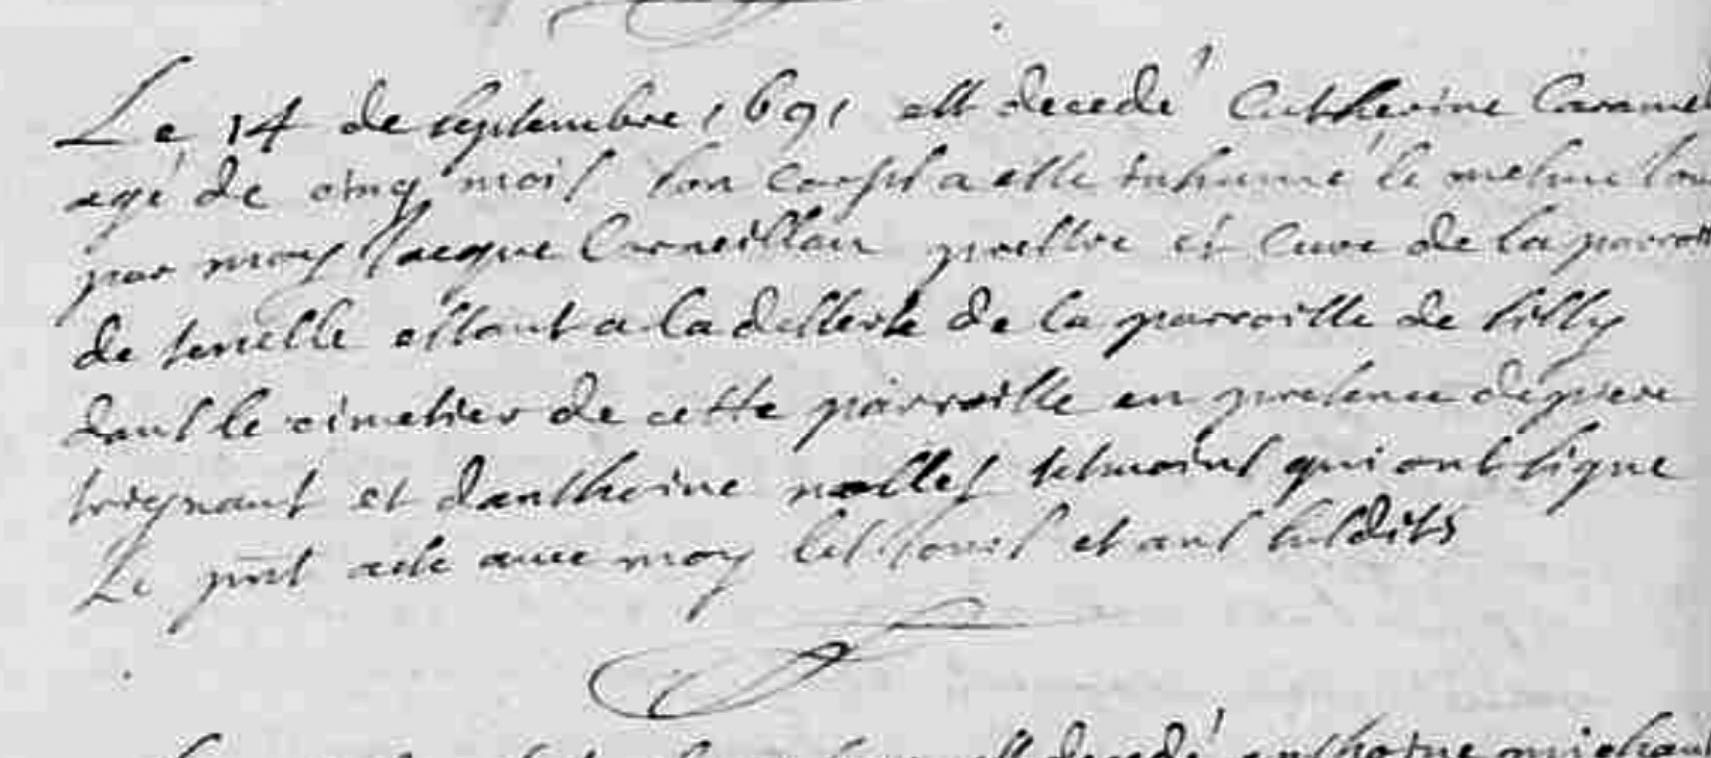 Le 14 de septembre 1691 est decedé Catherine Caramel
agé de cinq mois son corps a esté inhumé le mesme
par moy Jacque Corneillan prestre et Curé de la
de senelle estant a la desserte de la parroisse de silly
dans le cimetier de cette parroisse en presence de piere
trignant et danthoine nollet tesmoins qui ont signe
Le pnt acte avec moy les jours et ans susdits
decedé anthoine michaut